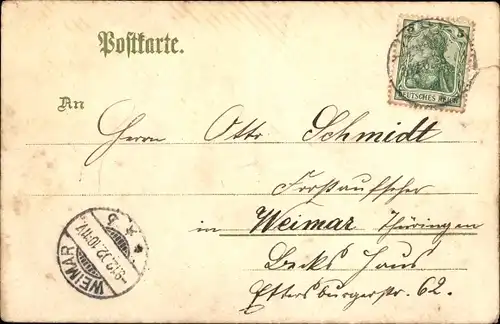 Postkarte.
DEUTSCHES REICH
An
Herrn Otto Schmidt
Forstaufseher
in Weimar Thüringen
Becks Haus
Ettersburgerstr. 62.
WEIMAR
-9.12.02. 10-11V.
* 5